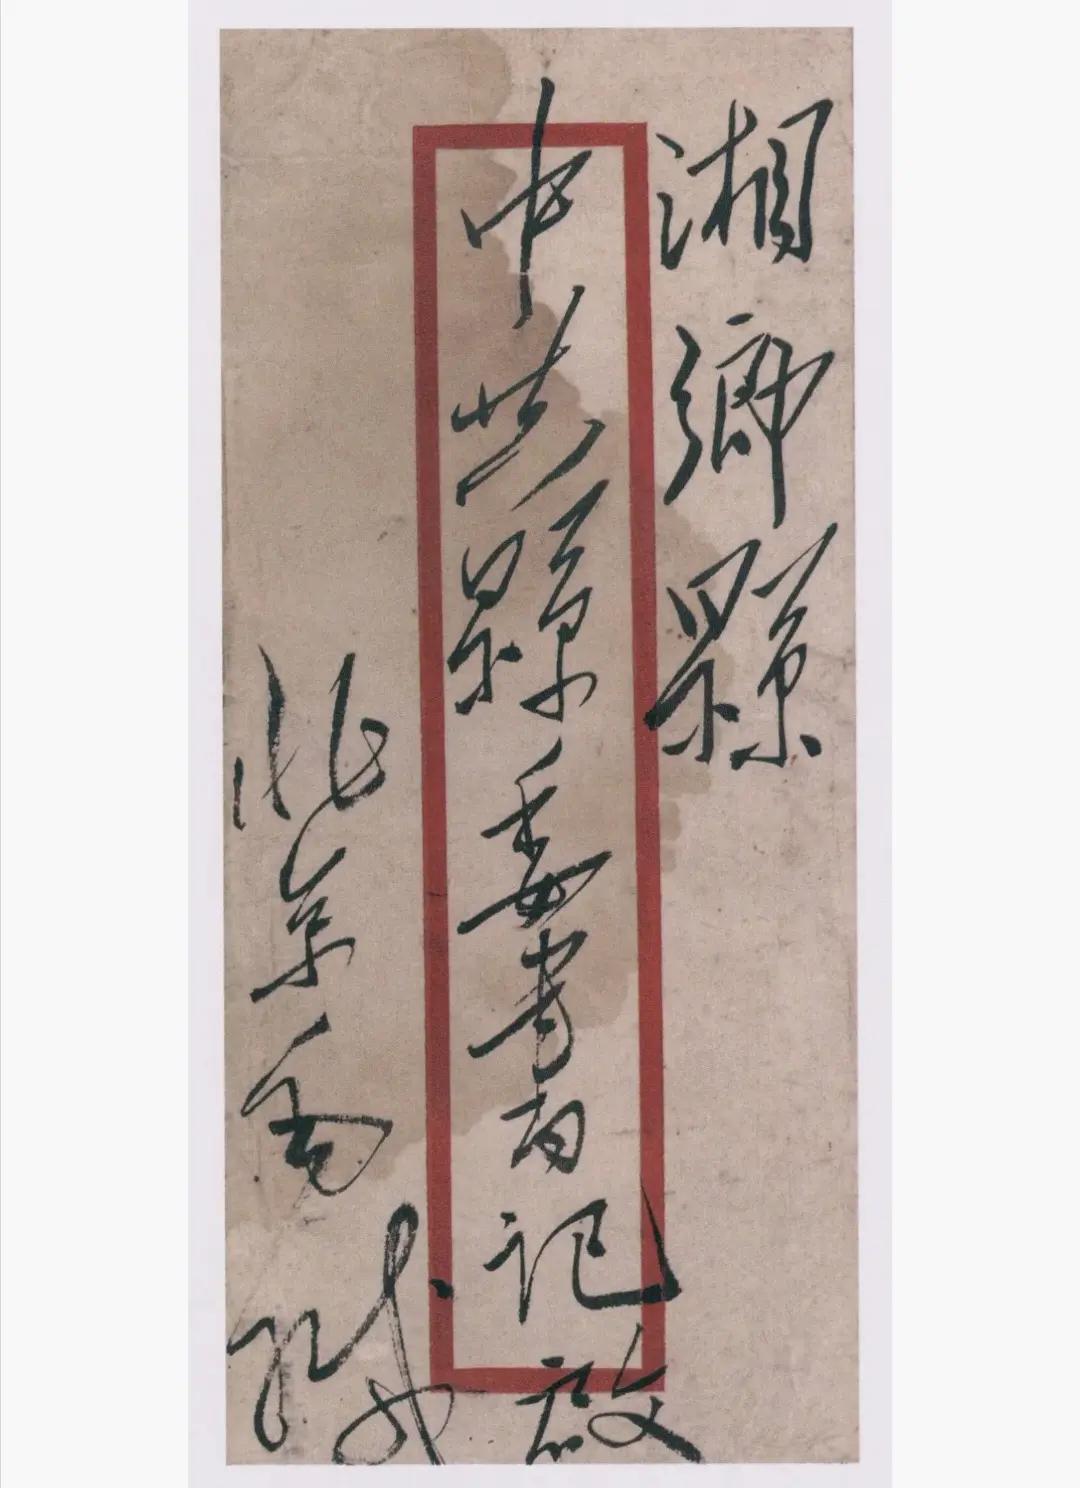 湘鄉縣
中共縣委書記啟
北京毛緘